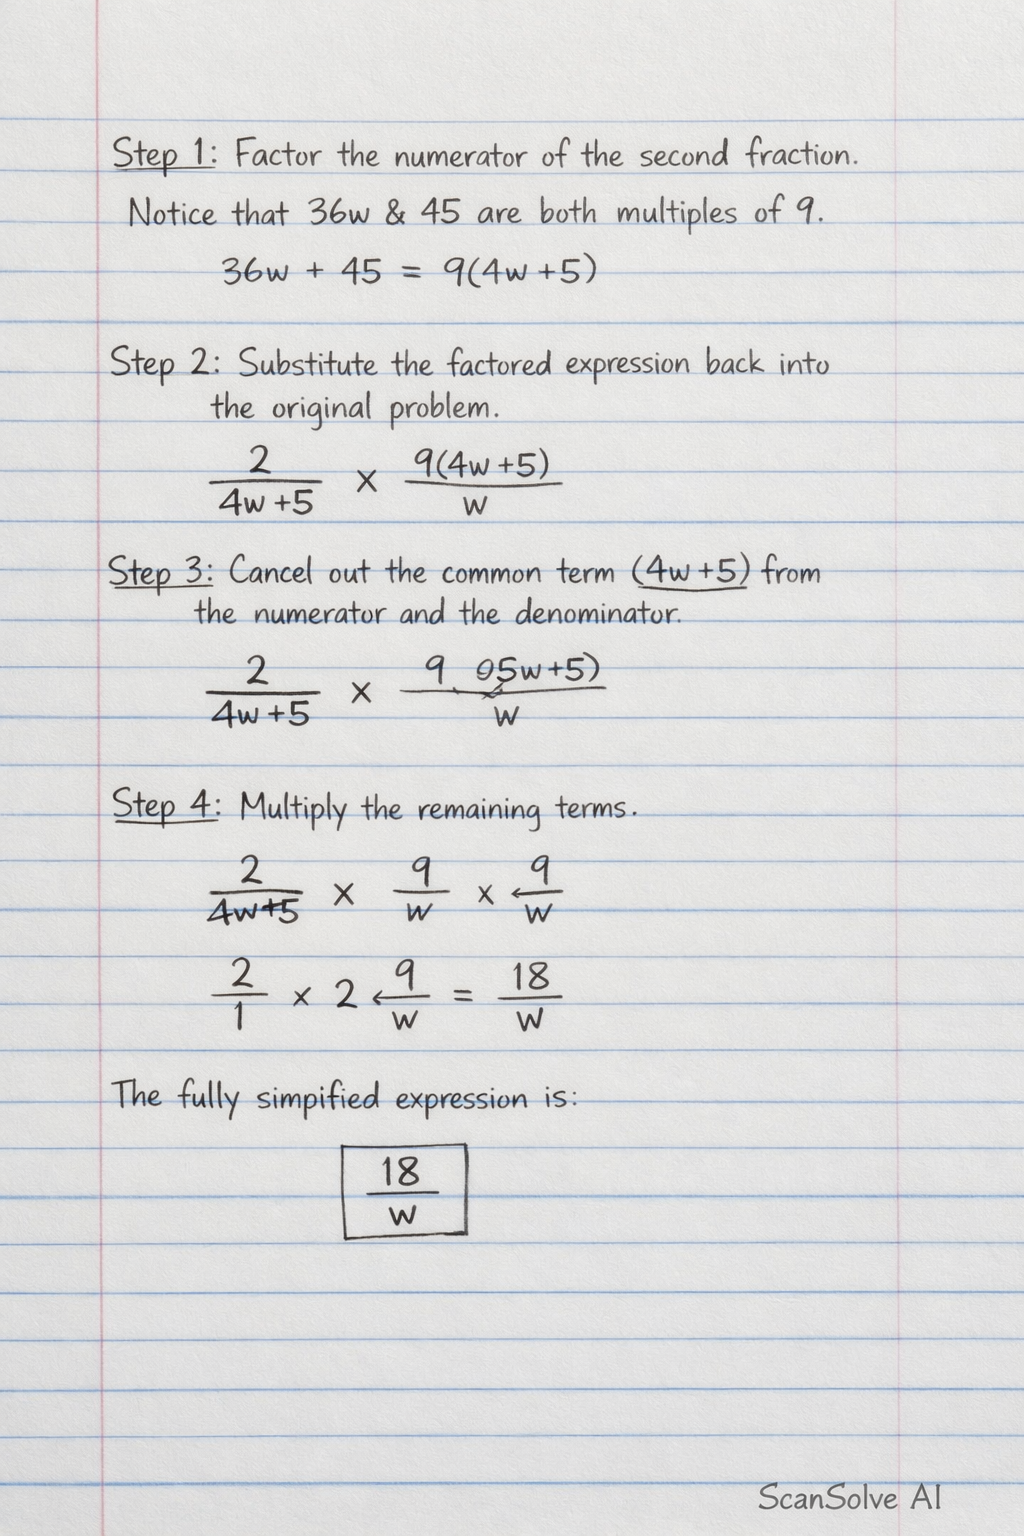 Step 1: Factor the numerator of the second fraction.
Notice that 36w & 45 are both multiples of 9.
36w + 45 = 9(4w+5)
Step 2: Substitute the factored expression back into
the original problem.
2 9(4w+5)
4w+5 × w
Step 3: Cancel out the common term (4w+5) from
the numerator and the denominator.
2 9 05w+5)
4w+5 × w
Step 4: Multiply the remaining terms.
2 9 9
4w+5 × w × w
2 9 18
1 × 2 ← w = w
The fully simpified expression is:
18
w
ScanSolve AI